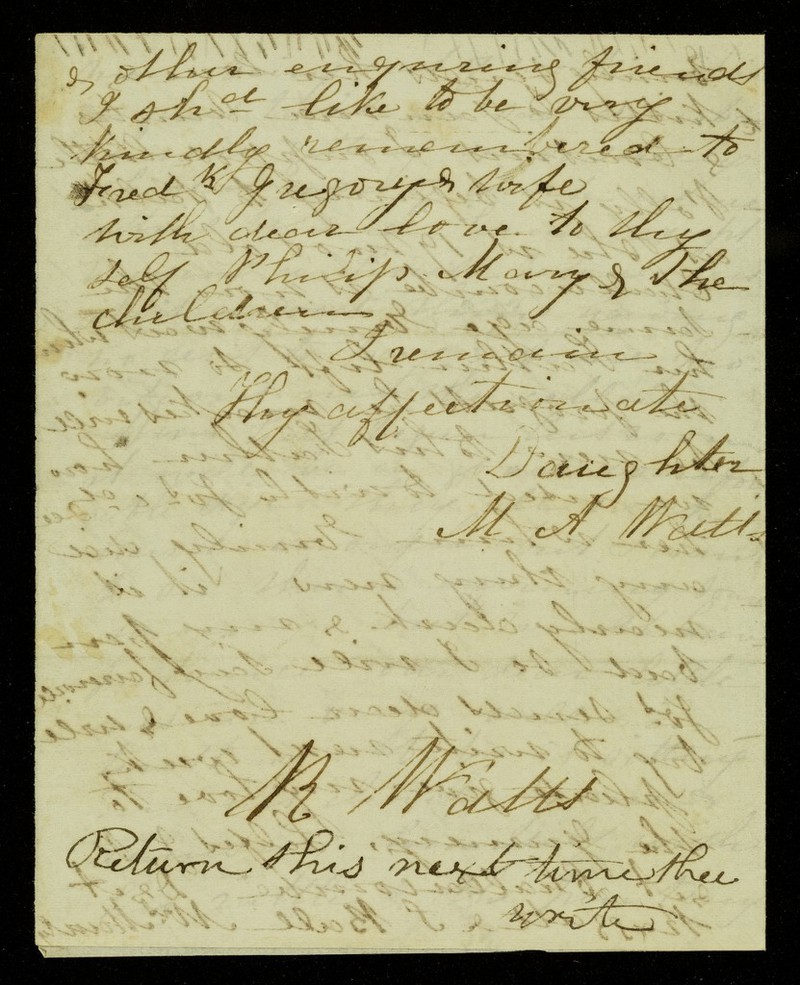 & other enquring friends
I shd like to be very
kindly remembered to
Fredk Gregory & wife
with dear love to thy
self Philip Mary & the
children
I remain
Thy affectionate
Daughter
M A Watts
R Watts
Return this next time thee
write